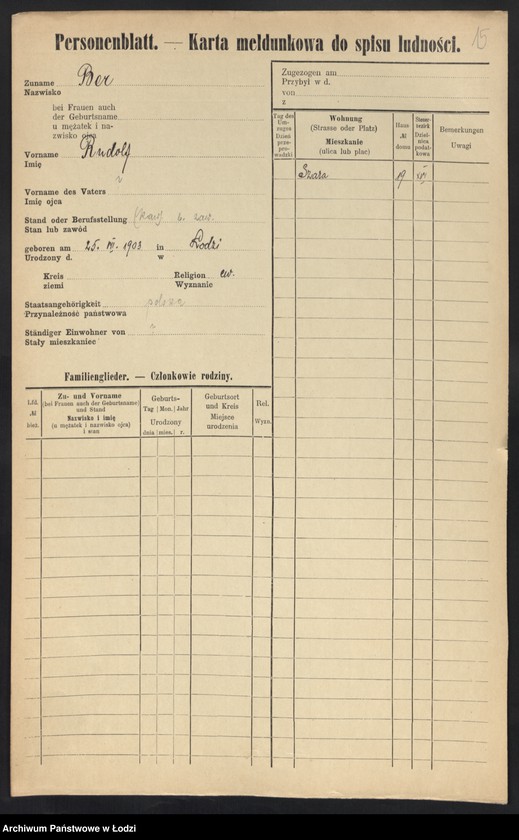 Personenblatt. — Karta meldunkowa do spisu ludności.
15
Zuname
Nazwisko
Ber
bei Frauen auch
der Geburtsname
u mężatek i na-
zwisko ojca
Vorname
Imię
Rudolf
Vorname des Vaters
Imię ojca
Stand oder Berufsstellung
Stan lub zawód
geboren am 25. VII. 1903 in Łodzi
Urodzony d. w
Kreis
ziemi
Religion ew.
Wyznanie
Staatsangehörigkeit
Przynależność państwowa
Ständiger Einwohner von
Stały mieszkaniec
Zugezogen am
Przybył w d.
von
z
Tag des
Um-
zuges
Dzień
prze-
pro-
wadzki
Wohnung
(Strasse oder Platz)
Mieszkanie
(ulica lub plac)
Haus
№
domu
Steuer-
bezirk
Dziel-
nica
podat-
kowa
Bemerkungen
Uwagi
Szara 19
Familienglieder. — Członkowie rodziny.
Lfd.
№
bież.
Zu- und Vorname
(bei Frauen auch der Geburtsname)
und Stand
Nazwisko i imię
(u mężatek i nazwisko ojca)
i stan
Geburts-
Tag | Mon. | Jahr
Urodzony
dnia | mies. | r.
Geburtsort
und Kreis
Miejsce
urodzenia
Rel.
Wyzn.
Archiwum Państwowe w Łodzi